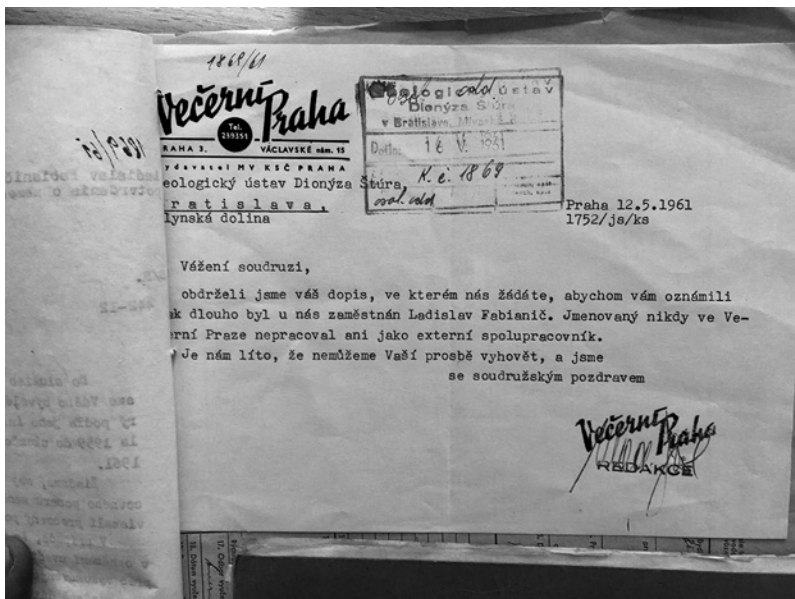 1868/61
Večerní Praha
Tel. 239351
RAHA 3. VÁCLAVSKÉ nám. 15
ydavatel MV KSČ PRAHA
Geologický ústav
Dionýza Štúra
v Bratislave,
Došlo: 16 V. 1961
K. č. 1869
osob. odd
eologický ústav Dionýza Štúra,
ratislava,
lynská dolina
Praha 12.5.1961
1752/js/ks
Vážení soudruzi,
obdrželi jsme váš dopis, ve kterém nás žádáte, abychom vám oznámili
ak dlouho byl u nás zaměstnán Ladislav Fabianič. Jmenovaný nikdy ve Ve-
erní Praze nepracoval ani jako externí spolupracovník.
Je nám líto, že nemůžeme Vaší prosbě vyhovět, a jsme
se soudružským pozdravem
Večerní Praha
REDAKCE